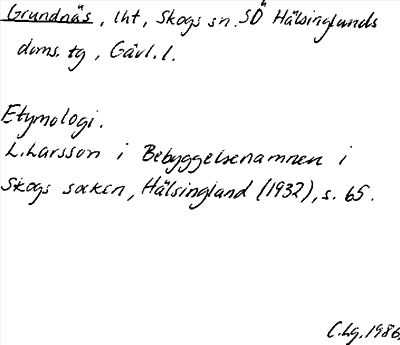 Grundnäs, lht, Skogs sn. SÖ Hälsinglands
doms. tg, Gävl. l.
Etymologi.
L. Larsson i Bebyggelsenamnen i
Skogs socken, Hälsingland (1932), s. 65.
C. Lg. 1986.